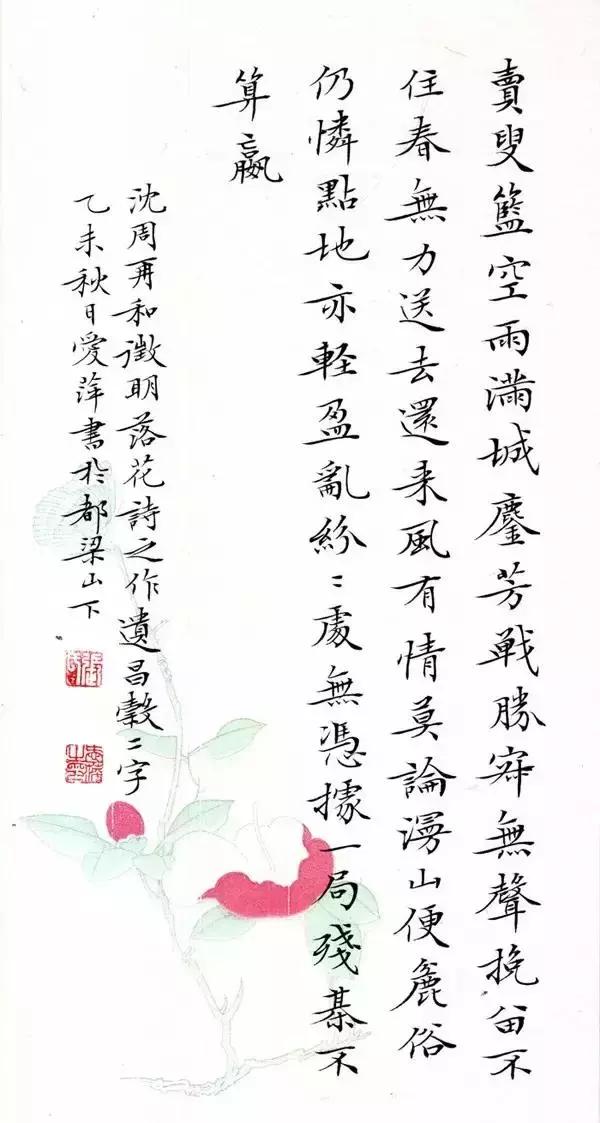 賣叟籃空雨滿城鏖芳戦勝寂無聲挽留不
住春無力送去還来風有情莫論漫山便麁俗
仍憐點地亦軽盈亂紛〻處無憑據一局殘棊不
算贏
沈周再和徵明落花詩之作遺昌穀二字
乙未秋日愛萍書於都梁山下